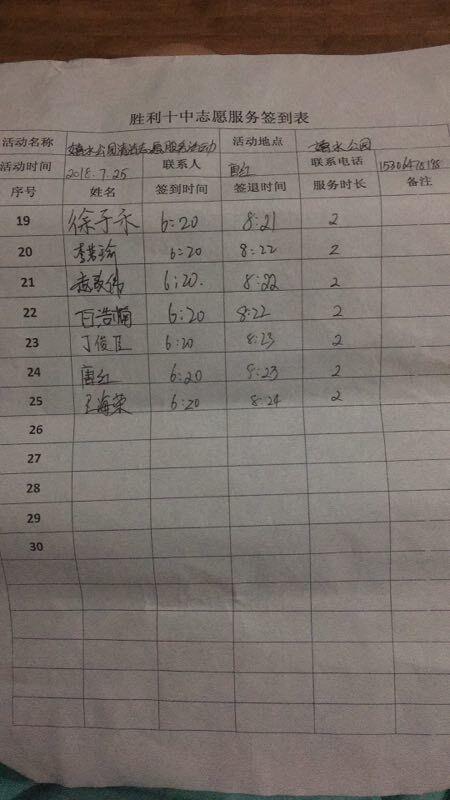 胜利十中志愿服务签到表
活动名称 公园清洁志愿服务活动 活动地点 水公园
活动时间 2018.7.25 联系人 唐红 联系电话
序号 姓名 签到时间 签退时间 服务时长 备注
19 徐子禾 6:20 8:21 2
20 6:20 8:22 2
21 6:20. 8:22 2
22 6:20 8:22 2
23 丁俊臣 6:20 8:23 2
24 唐红 6:20 8:23 2
25 王海荣 6:20 8:24 2
26
27
28
29
30